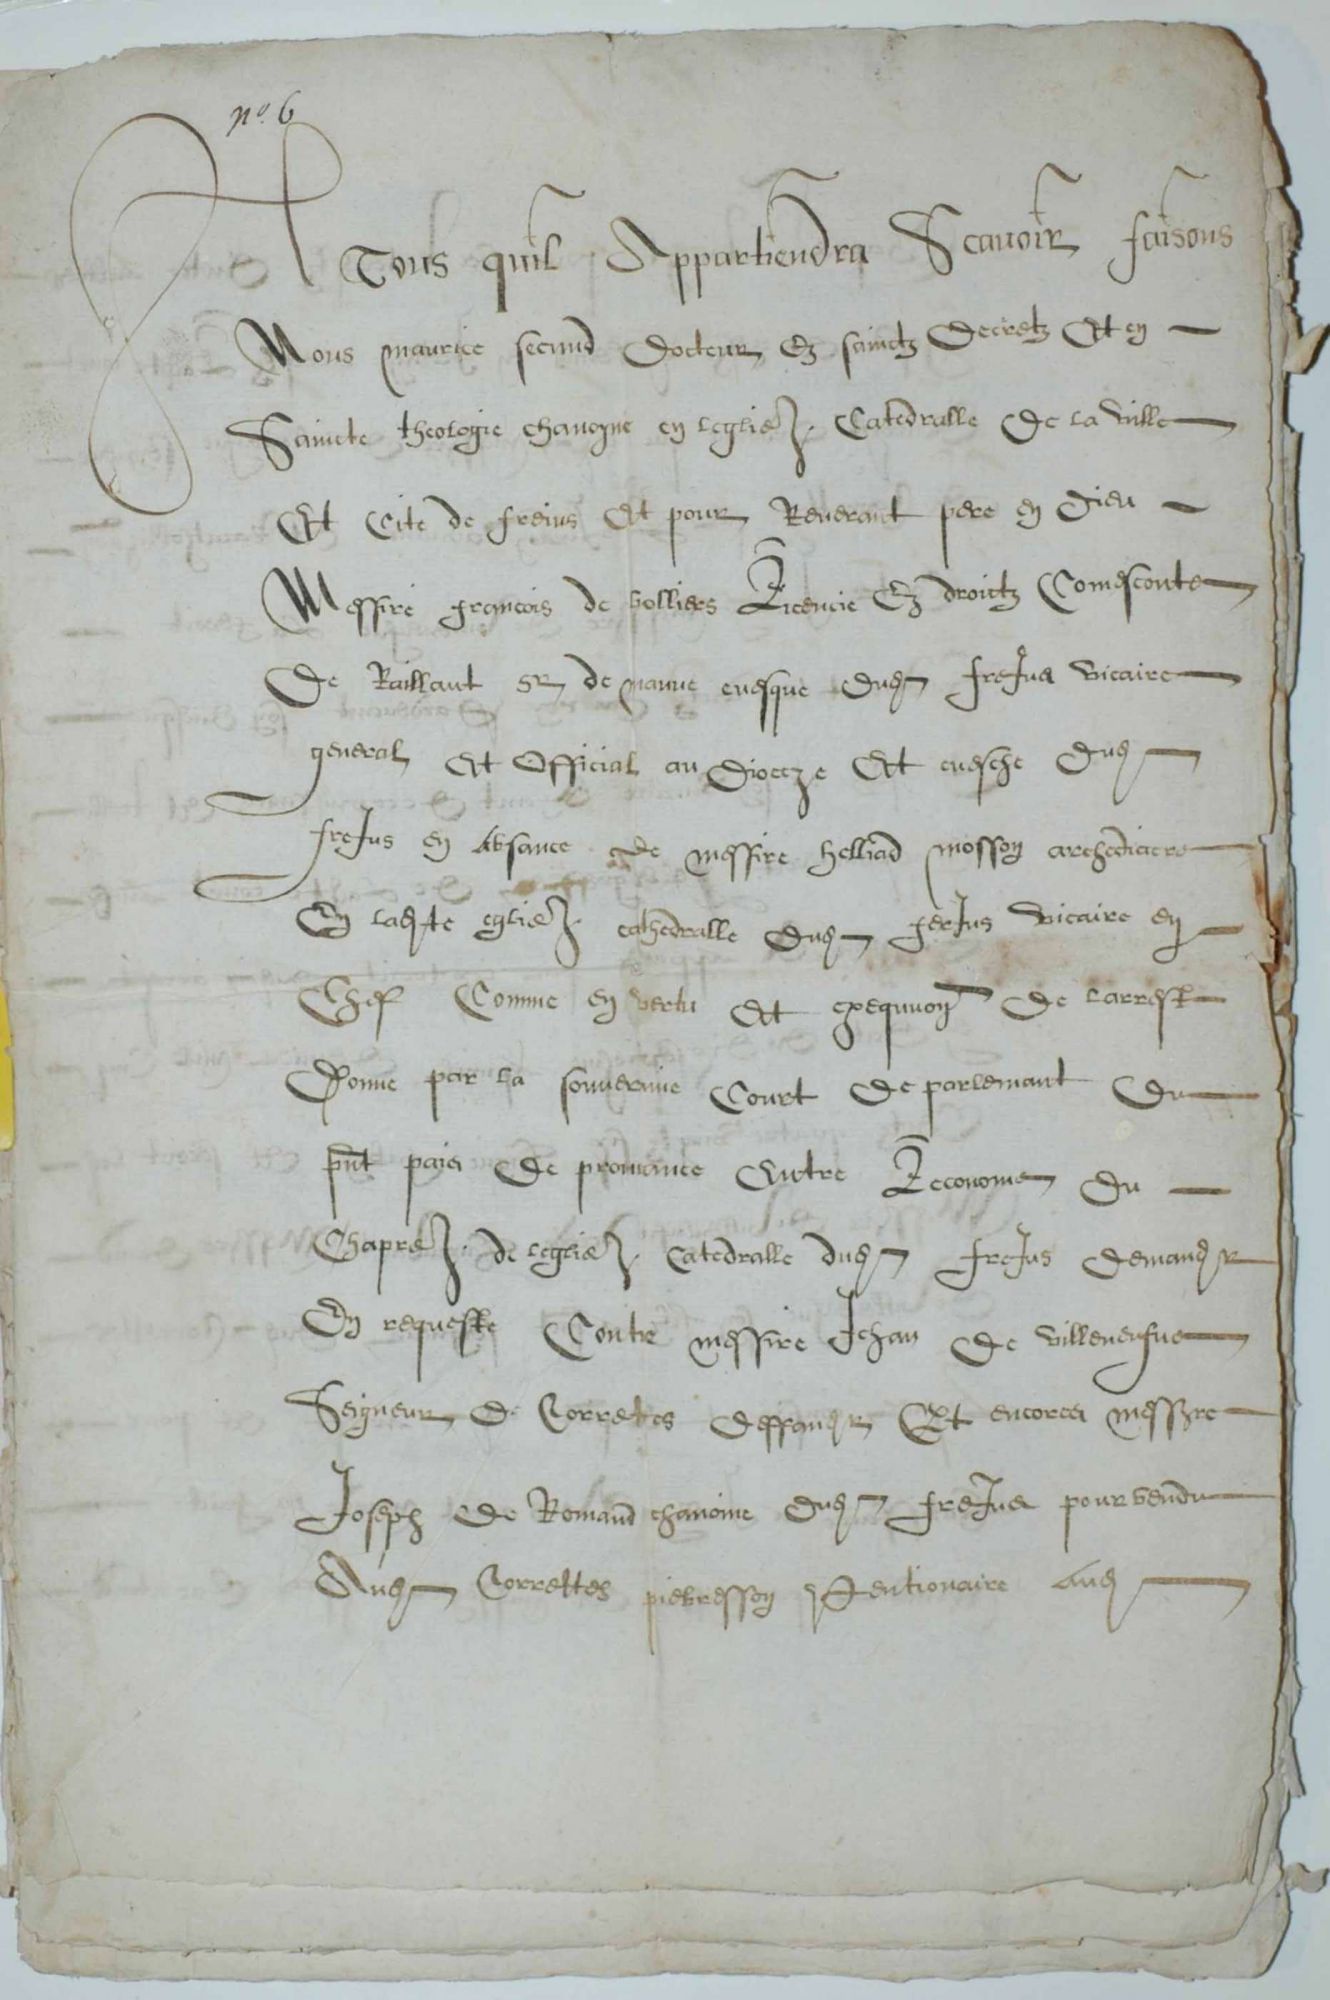 nº. 6
A Tous quil Appartiendra Scavoir faisons
Nous maurice secund docteur Ez sainctz Decretz Et en
Saincte theologie chanoyne en leglise Catedralle De la ville
Et Cite de freius Et pour Reverant pere en Dieu
Messire francois de bolliers Licencie Ez droictz
De Raillant sr de manne evesque dud frejus vicaire
general Et Official au Diocze Et evesche dud
frejus en Absance de messire helliad mosson
En ladte eglise cathedralle dud ferjus vicaire en
Chef Comme en vertu Et exequuon De larrest
Donne par la souveraine Court De parlemant du
pnt pais De provance Entre Leconome du
Chapre de leglise Catedralle dud frejus demandr
En requeste Contre messire Jehan De villeneufve
Seigneur De Correttes deffandr Et encores messire
Joseph De Romand chanoine dud frejus pourvendu
Aud Correttes pierresson Rentionaire Aud